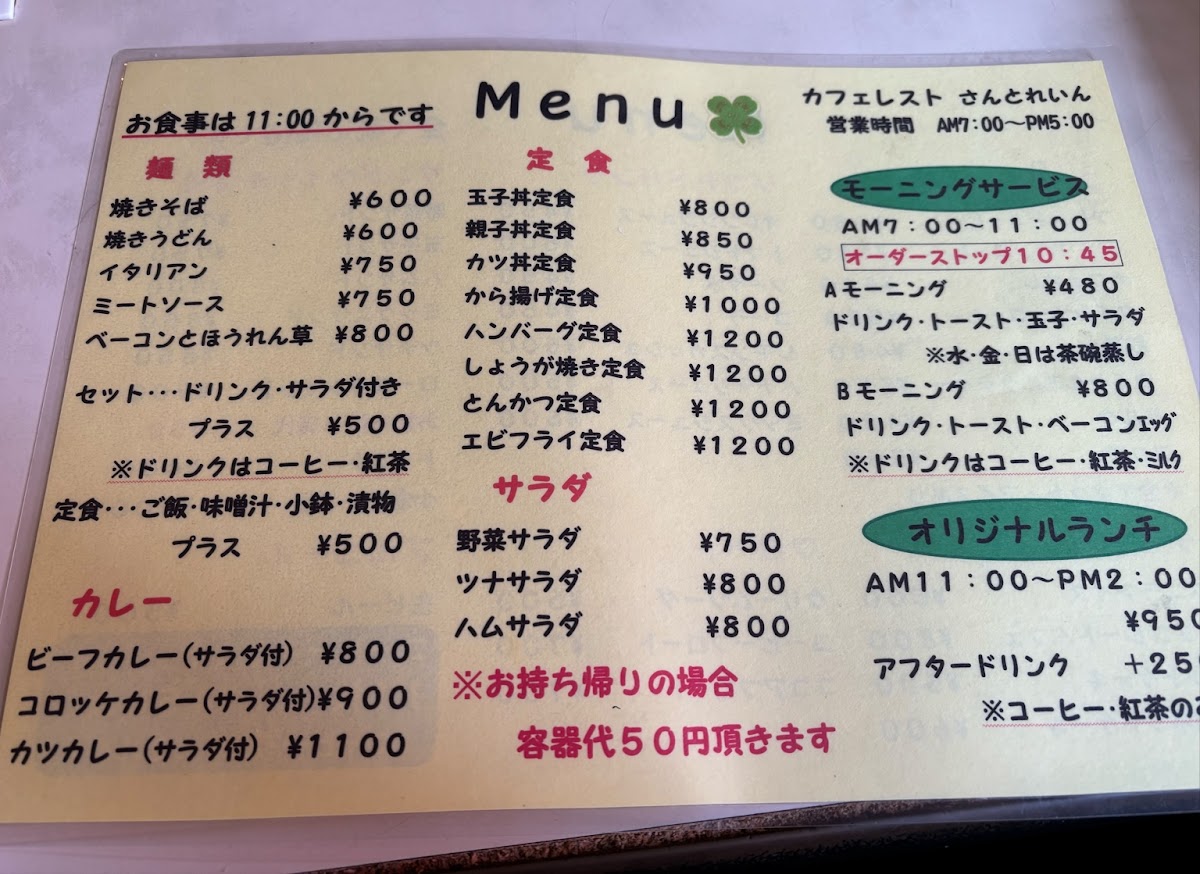 お食事は11:00からです
Menu
カフェレスト さんとれいん
営業時間 AM7:00～PM5:00
麺類
焼きそば ¥600
焼きうどん ¥600
イタリアン ¥750
ミートソース ¥750
ベーコンとほうれん草 ¥800
セット･･･ドリンク･サラダ付き
プラス ¥500
※ドリンクはコーヒー･紅茶
定食･･･ご飯･味噌汁･小鉢･漬物
プラス ¥500
カレー
ビーフカレー(サラダ付) ¥800
コロッケカレー(サラダ付)¥900
カツカレー(サラダ付) ¥1100
定食
玉子丼定食 ¥800
親子丼定食 ¥850
カツ丼定食 ¥950
から揚げ定食 ¥1000
ハンバーグ定食 ¥1200
しょうが焼き定食 ¥1200
とんかつ定食 ¥1200
エビフライ定食 ¥1200
サラダ
野菜サラダ ¥750
ツナサラダ ¥800
ハムサラダ ¥800
※お持ち帰りの場合
容器代50円頂きます
モーニングサービス
AM7:00～11:00
オーダーストップ10:45
Aモーニング ¥480
ドリンク･トースト･玉子･サラダ
※水･金･日は茶碗蒸し
Bモーニング ¥800
ドリンク･トースト･ベーコンエッグ
※ドリンクはコーヒー･紅茶･ミルク
オリジナルランチ
AM11:00～PM2:00
¥950
アフタードリンク +25
※コーヒー･紅茶の